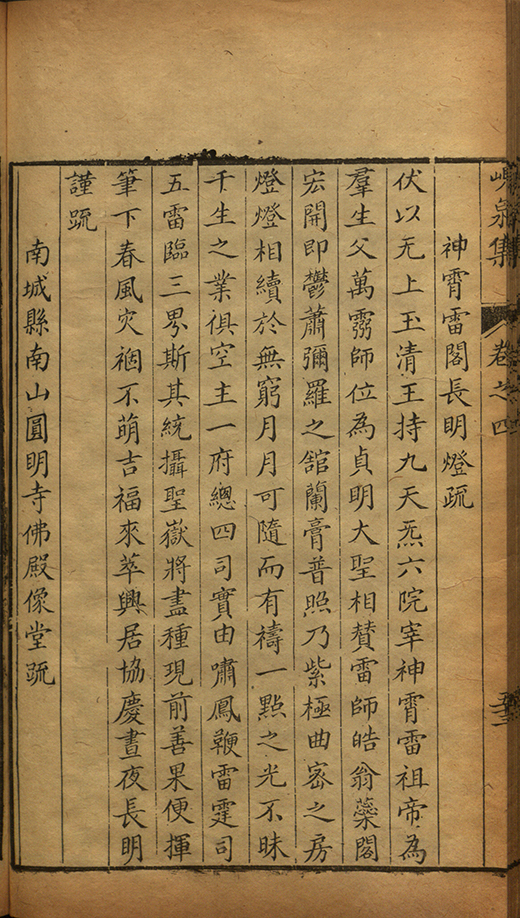 峴泉集 卷之四
神霄雷閣長明燈疏
伏以无上玉清王持九天炁六院宰神霄雷祖帝為
羣生父萬靈師位為貞明大聖相贊雷師皓翁蘂閣
宏開即鬱蕭彌羅之館蘭膏普照乃紫極曲密之房
燈燈相續於無窮月月可隨而有禱一點之光不昧
千生之業俱空主一府總四司實由嘯鳳鞭雷霆司
五雷臨三界斯其統攝聖嶽將盡種現前善果便揮
筆下春風灾禍不萌吉福來萃興居協慶晝夜長明
謹疏
南城縣南山圓明寺佛殿像堂疏